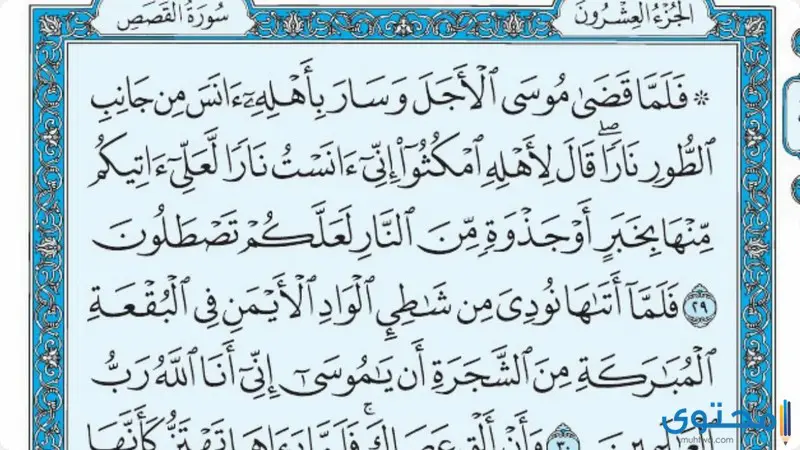 الجُزْءُ العِشْرُونَ
سُورَةُ القَصَصِ
۞ فَلَمَّا قَضَىٰ مُوسَى ٱلْأَجَلَ وَسَارَ بِأَهْلِهِۦٓ ءَانَسَ مِن جَانِبِ
ٱلطُّورِ نَارًاۖ قَالَ لِأَهْلِهِ ٱمْكُثُوٓا۟ إِنِّىٓ ءَانَسْتُ نَارًا لَّعَلِّىٓ ءَاتِيكُم
مِّنْهَا بِخَبَرٍ أَوْ جَذْوَةٍ مِّنَ ٱلنَّارِ لَعَلَّكُمْ تَصْطَلُونَ
٢٩ فَلَمَّآ أَتَىٰهَا نُودِىَ مِن شَـٰطِئِ ٱلْوَادِ ٱلْأَيْمَنِ فِى ٱلْبُقْعَةِ
ٱلْمُبَـٰرَكَةِ مِنَ ٱلشَّجَرَةِ أَن يَـٰمُوسَىٰٓ إِنِّىٓ أَنَا ٱللَّهُ رَبُّ
ٱلْعَـٰلَمِينَ ٣٠ وَأَنْ أَلْقِ عَصَاكَۚ فَلَمَّا رَءَاهَا تَهْتَزُّ كَأَنَّهَا
محتوى
muhtwa.com